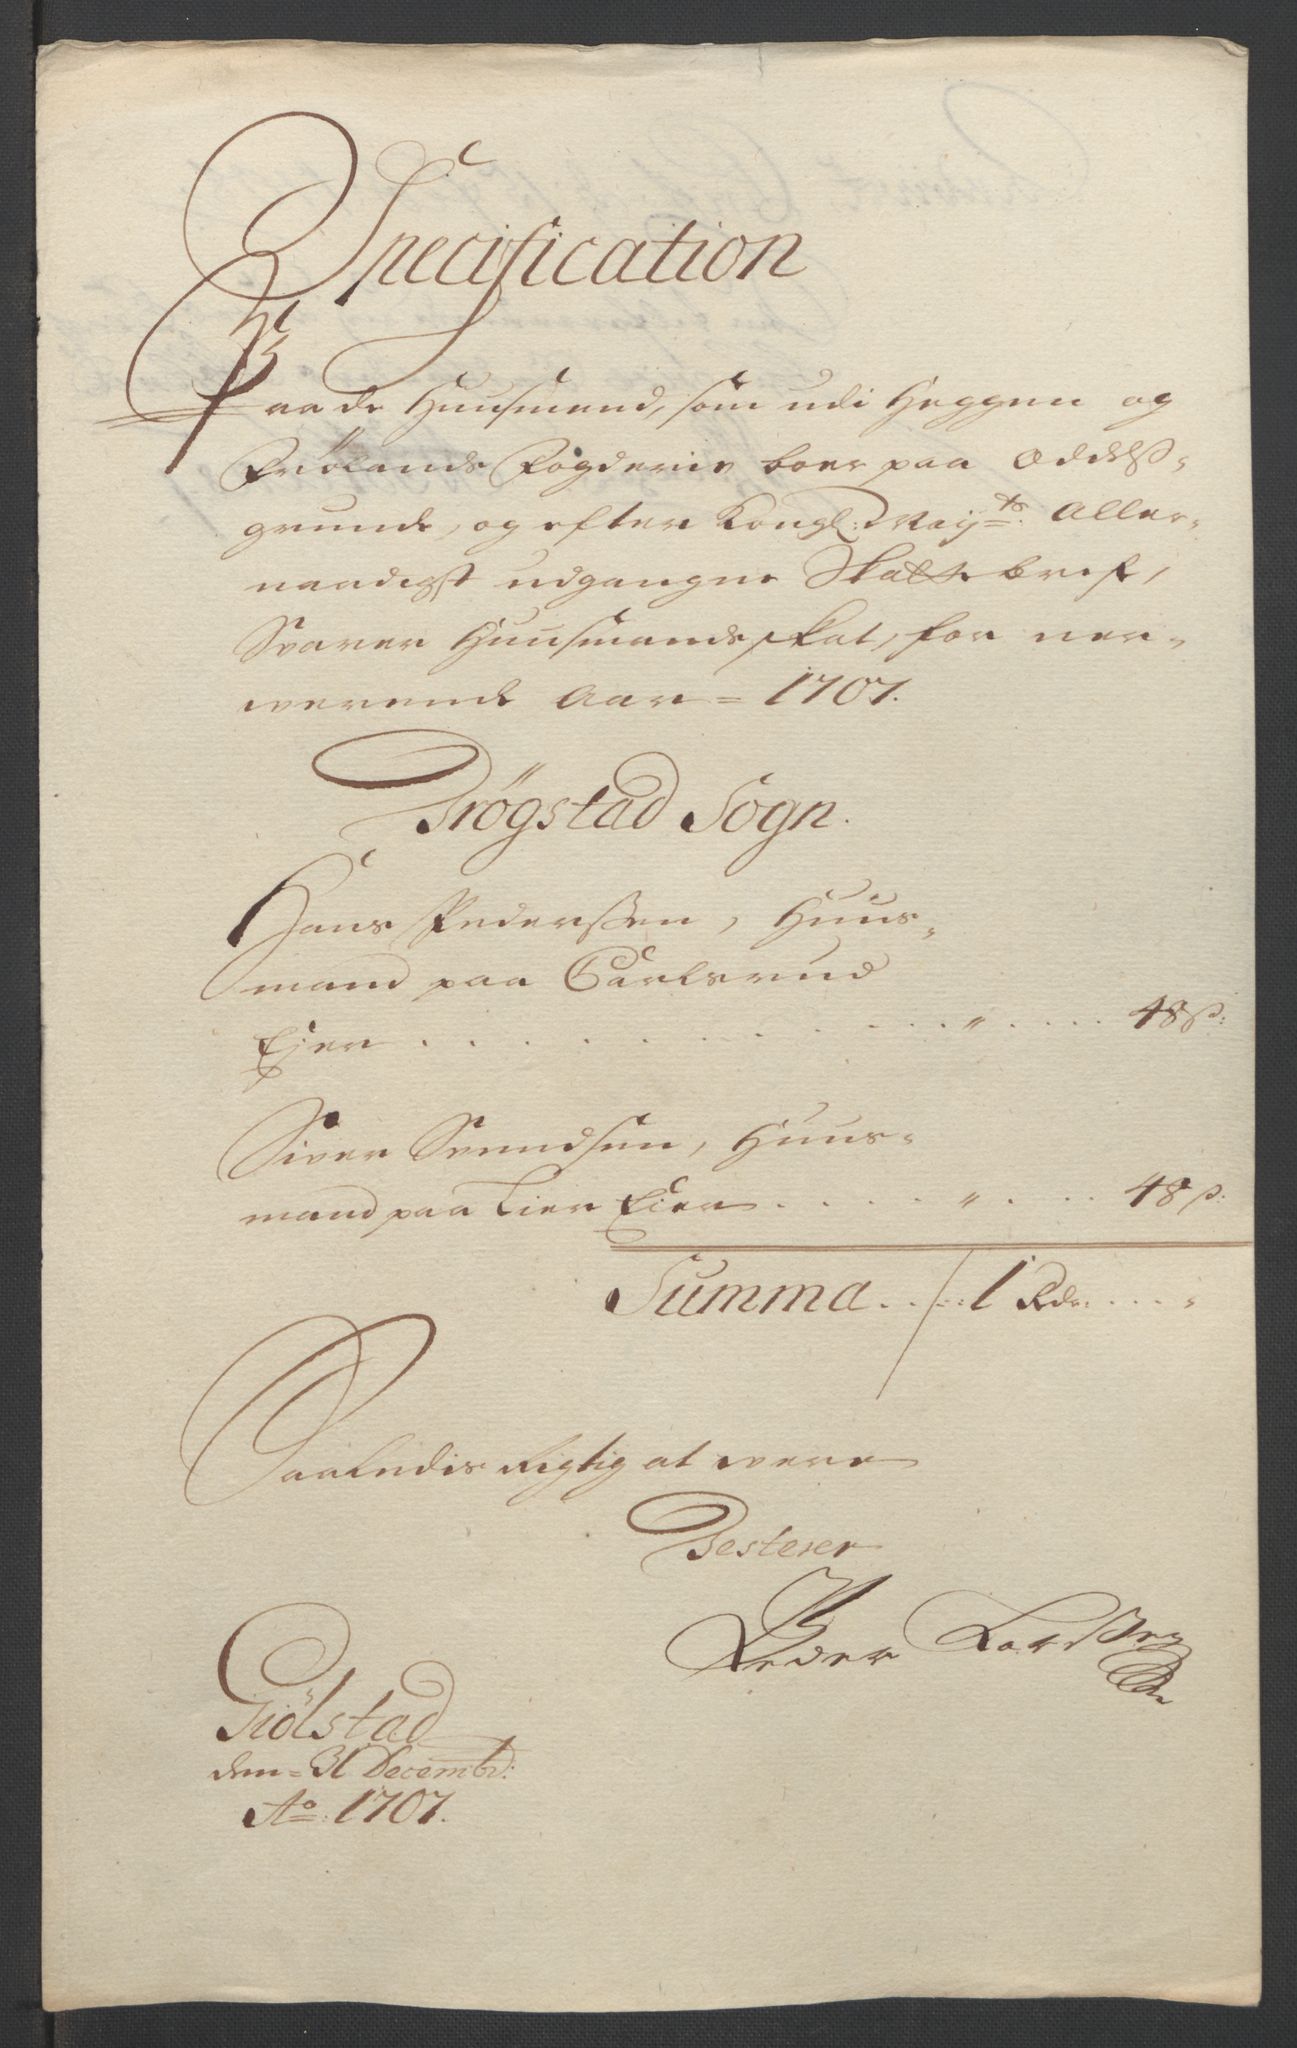 Specification
Paa de Huusmend, som udi Heggen og
Frölands Fogderie boer paa Oddelß-
grunde, og efter Kongl: Mayts: Aller-
naadigst udgangne Skattebref,
Svarer Huusmandsskat, for ner-
werende Aar = 1707.
Trögstad Sogn.
Hans Pederssen, Huus-
mand paa Carlsrud
Ejer . . . . . . . . . . „ . . . . 48 ß:
Siver Svendsen, Huus-
mand paa Lier Eier . . . . . „ . . . . 48 ß:
Summa . . . . 1 Rdr: . . . . „
Saaledis Rigtig at were
Testerer
Peder
Giölstad
den = 31 Decembr:
Ao: 1707.